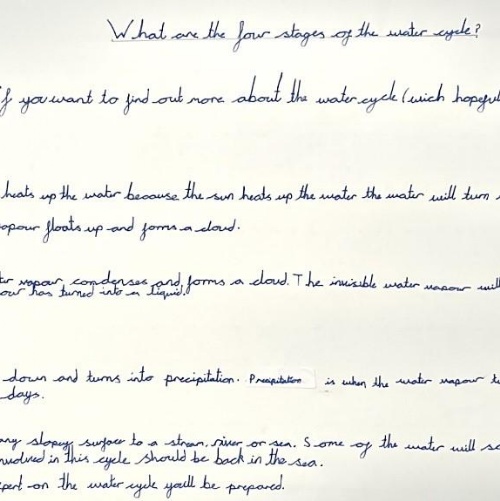 What are the four stages of the water cycle?
If you want to find out more about the water cycle (wich hopeful
heats up the water because the sun heats up the water the water will turn
apour floats up and forms a cloud.
ter vapour condenses and forms a cloud. The invisible water vapour will
our has turned into a liquid.
down and turns into precipitation. Precipitation is when the water vapour
days.
any slopey surface to a stream, river or sea. Some of the water will
involved in this cycle should be back in the sea.
xpert on the water cycle youll be prepared.